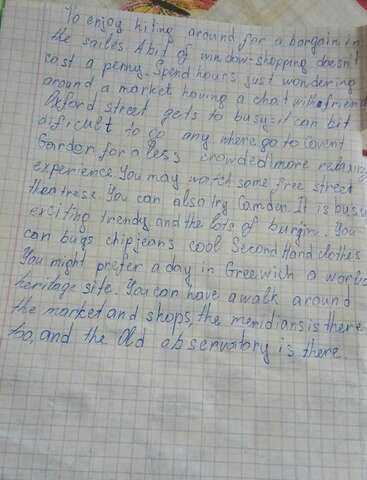 To enjoy hiting around for a bargain in
the sailes. A bit of window-shopping doesn't
cost a penny. Spend hours just wondering
around a market having a chat with a friend
Oxford street gets to busy it can bit
dificult to go any where go to Covent
Gardon for a less crowded more relaxing
experience. You may watch some free street
theatrese. You can also try Camden. It is busy
exciting trendy and the lots of burgin. You
can bugs chip jeans cool Second Hand clothes
You might prefer a day in Greewich a world
heritage site. You can have a walk around
the market and shops, the meridians is there
too, and the Old observatory is there